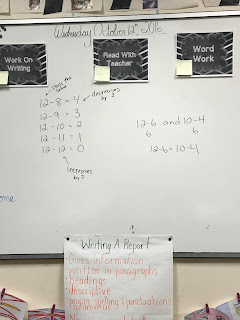 Wednesday October 12th, 2016
Work On
Writing
Read With
Teacher
Word
Work
12-8 = 4
12-9 = 3
12-10 = 2
12-11 = 1
12-12 = 0
decreases
by 1
Increases
by 1
12-6 and 10-4
6 6
12-6=10-4
ome
Writing A Report
Gives information
written in paragraphs
headings
descriptive
proper spelling & punctuation